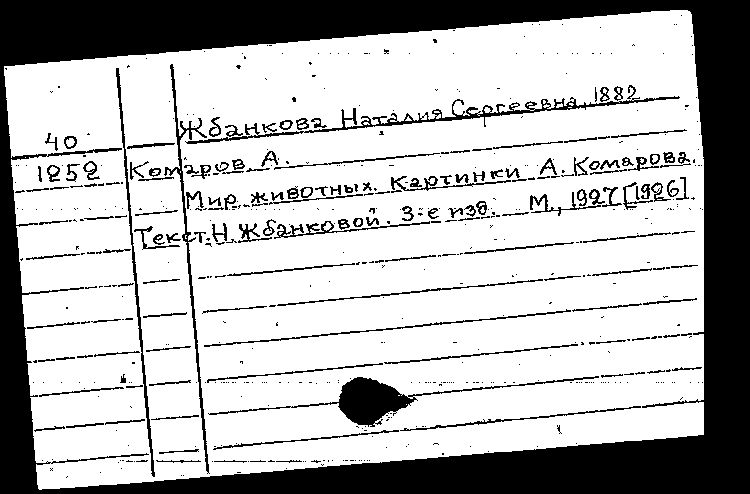 Жбанкова Наталия Сергеевна, 1882
40
1252 Комаров. А.
Мир животных. Картинки А. Комарова.
Текст. Н. Жбанковой. 3-е изд. М., 1927 [1926]